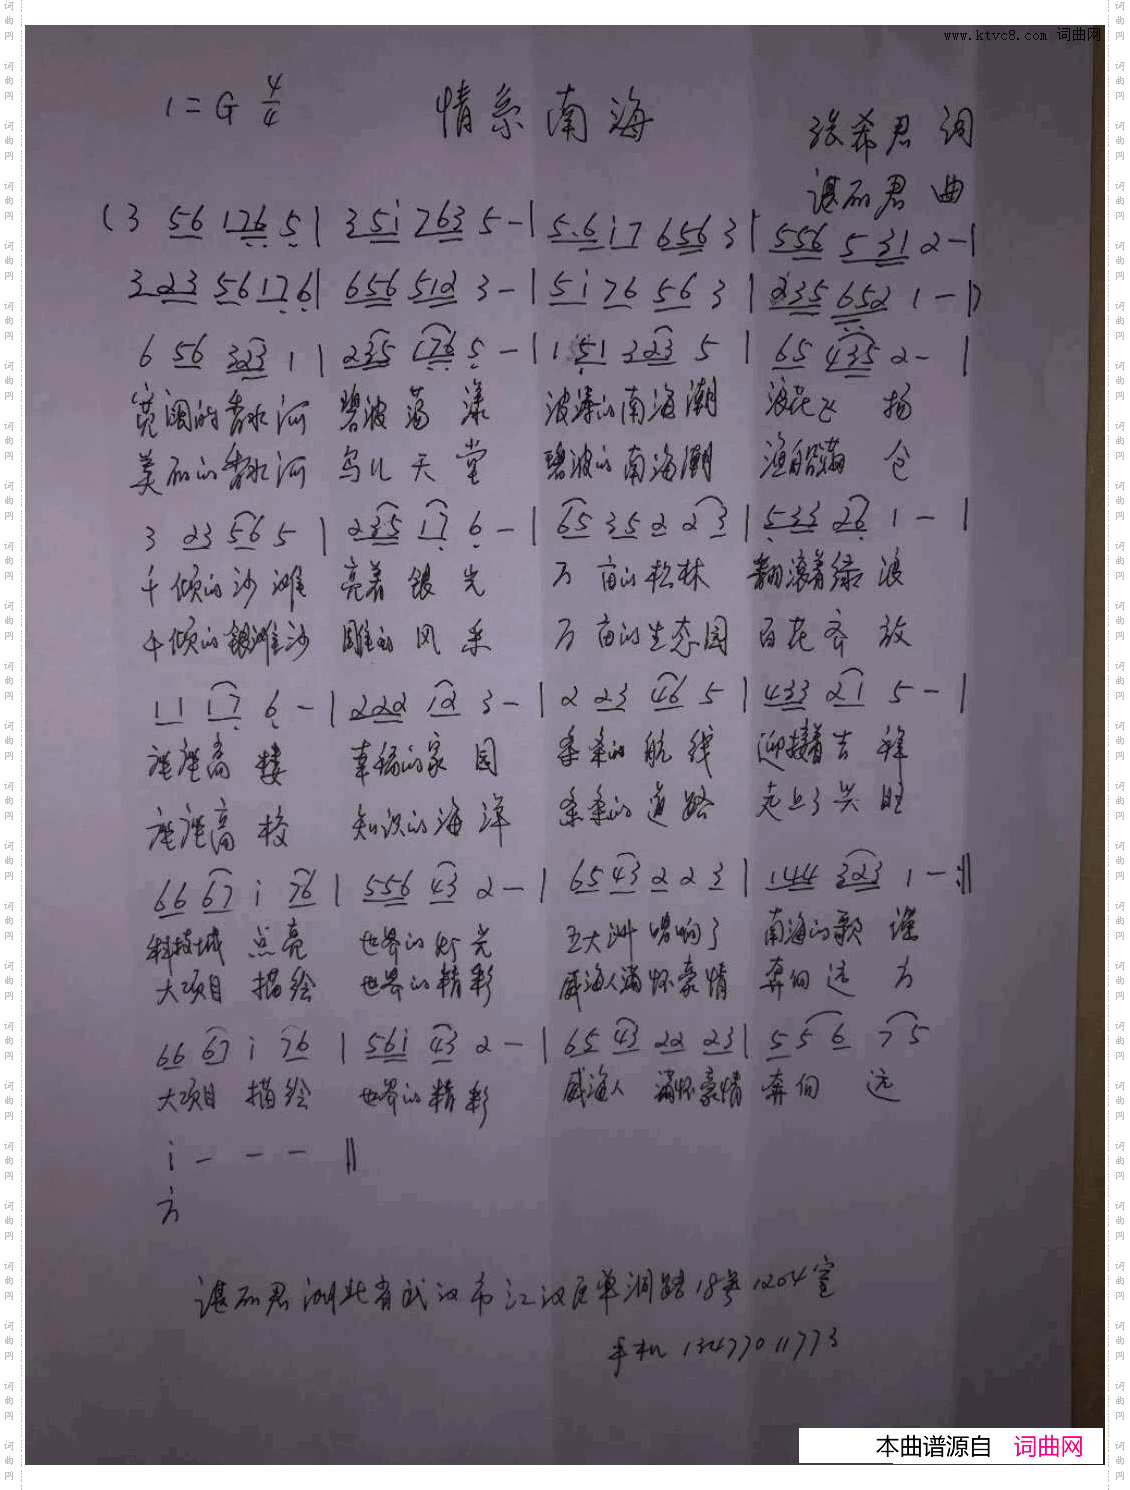 www.ktvc8.com 词曲网
1=G 4/4 情系南海
张希君 词
谌丽君 曲
(3 56 1276 5| 35i 763 5-|5.6i7 6563|556 531 2-|
323 56176|656 512 3-|5i76 563|235 652 1-|)
6 56 323 1|235 176 5-|1 51 323 5|65 435 2-|
宽阔的香水河 碧波荡漾 波涛的南海潮 浪花飞扬
美丽的香水河 鸟儿天堂 碧波的南海潮 渔船满仓
3 23 56 5|235 17 6-|65 35 2 23|533 26 1-|
千倾的沙滩 亮着银光 万亩的松林 翻滚着绿浪
千倾的银滩沙 雕的风采 万亩的生态园 百花齐放
11 17 6-|222 12 3-|2 23 46 5|433 21 5-|
座座高楼 幸福的家园 条条的航线 迎接着吉祥
座座高校 知识的海洋 条条的道路 走上了兴旺
66 67 i 76|556 43 2-|65 43 2 2 3|144 323 1-:‖
科技城 点亮 世界的灯光 五大洲 唱响了 南海的歌谣
大项目 描绘 世界的精彩 威海人满怀豪情 奔向远方
66 67 i 76|56i 43 2-|65 43 22 23|5 5 6 75
大项目 描绘 世界的精彩 威海人 满怀豪情 奔向 远
i - - - ‖
方
谌丽君 湖北省武汉市江汉区单洞路18号1204室
手机 13477011773
本曲谱源自 词曲网